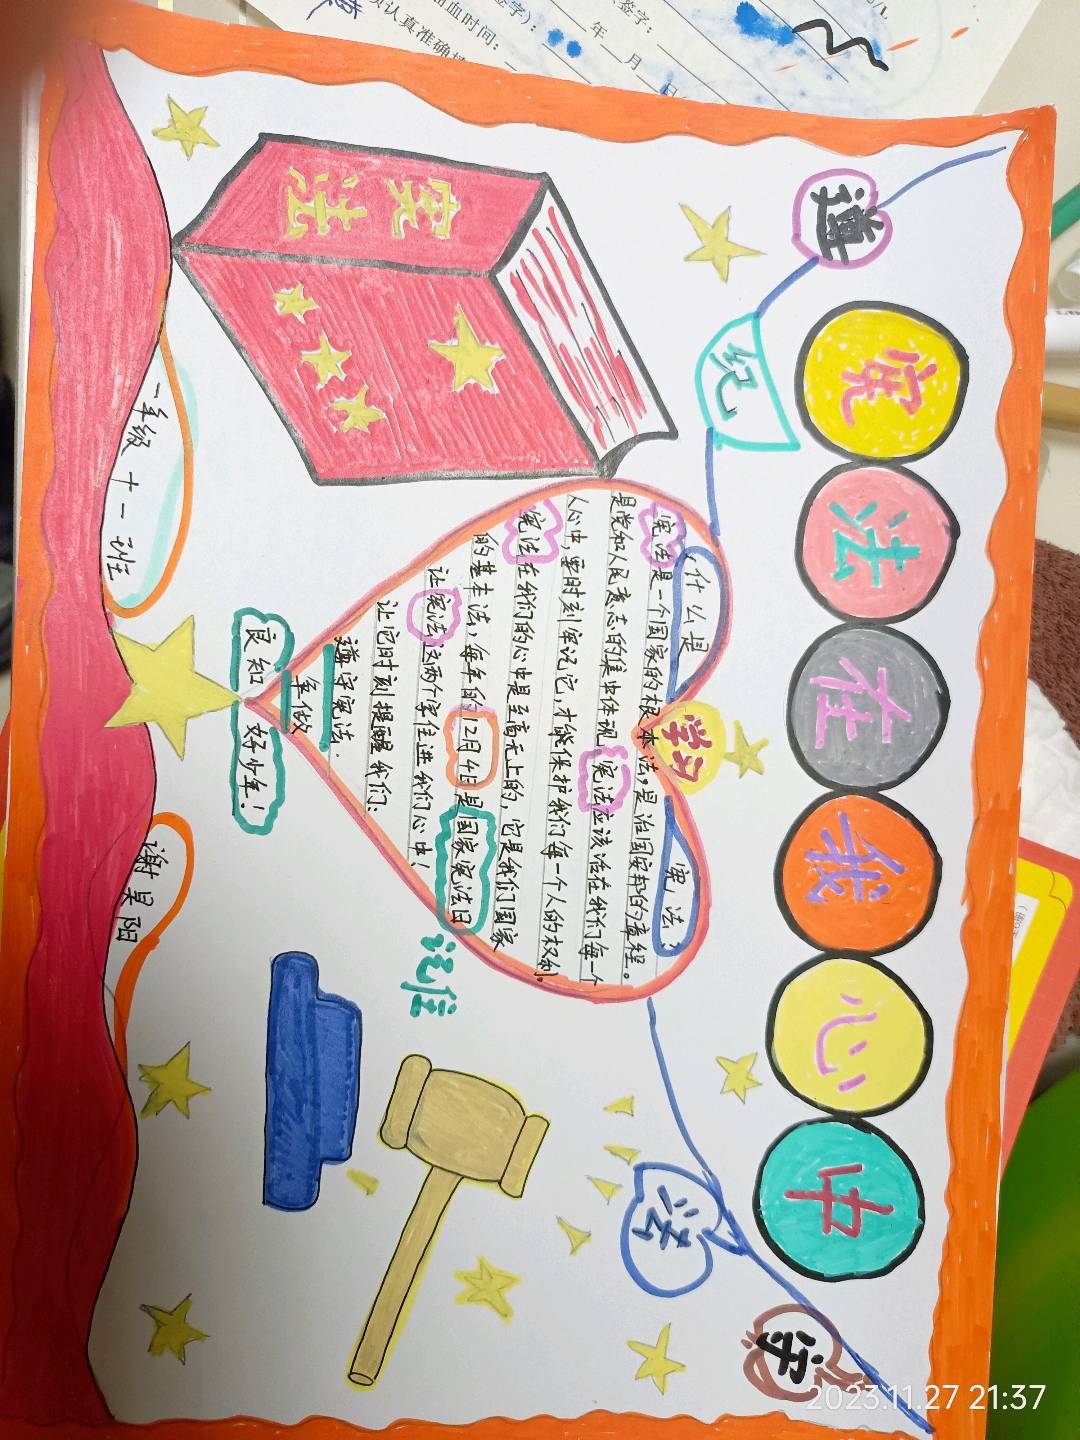 签字):
签字:
血时间:
年 月 日
认真准确填
遵
纪
宪法在我心中
法
守
宪法
学习
什么是
宪法?
宪法是一个国家的根本法,是治国安邦的章程。
是党和人民意志的集中体现,宪法应该活在我们每一个
人心中,要时刻牢记它,才能保护我们每一个人的权利.
宪法在我们的心中是至高无上的,它是我们国家
的基本法,每年的12月4日是国家宪法日
记住
让宪法这两个字住进我们心中!
让它时刻提醒我们:
遵守宪法.
争做
良知 好少年!
一年级 十一班
谢昊阳
2023.11.27 21:37